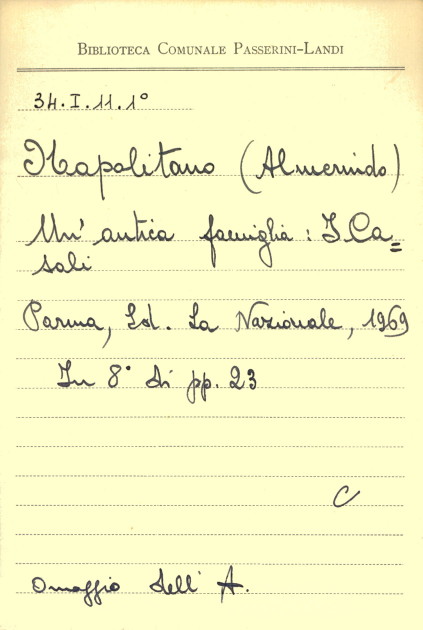 BIBLIOTECA COMUNALE PASSERINI-LANDI
34.I.11.1°
Napolitano (Almerindo)
Un' antica famiglia : I Ca=
sali
Parma, Ed. La Nazionale, 1969
In 8° di pp. 23
C
Omaggio dell' A.